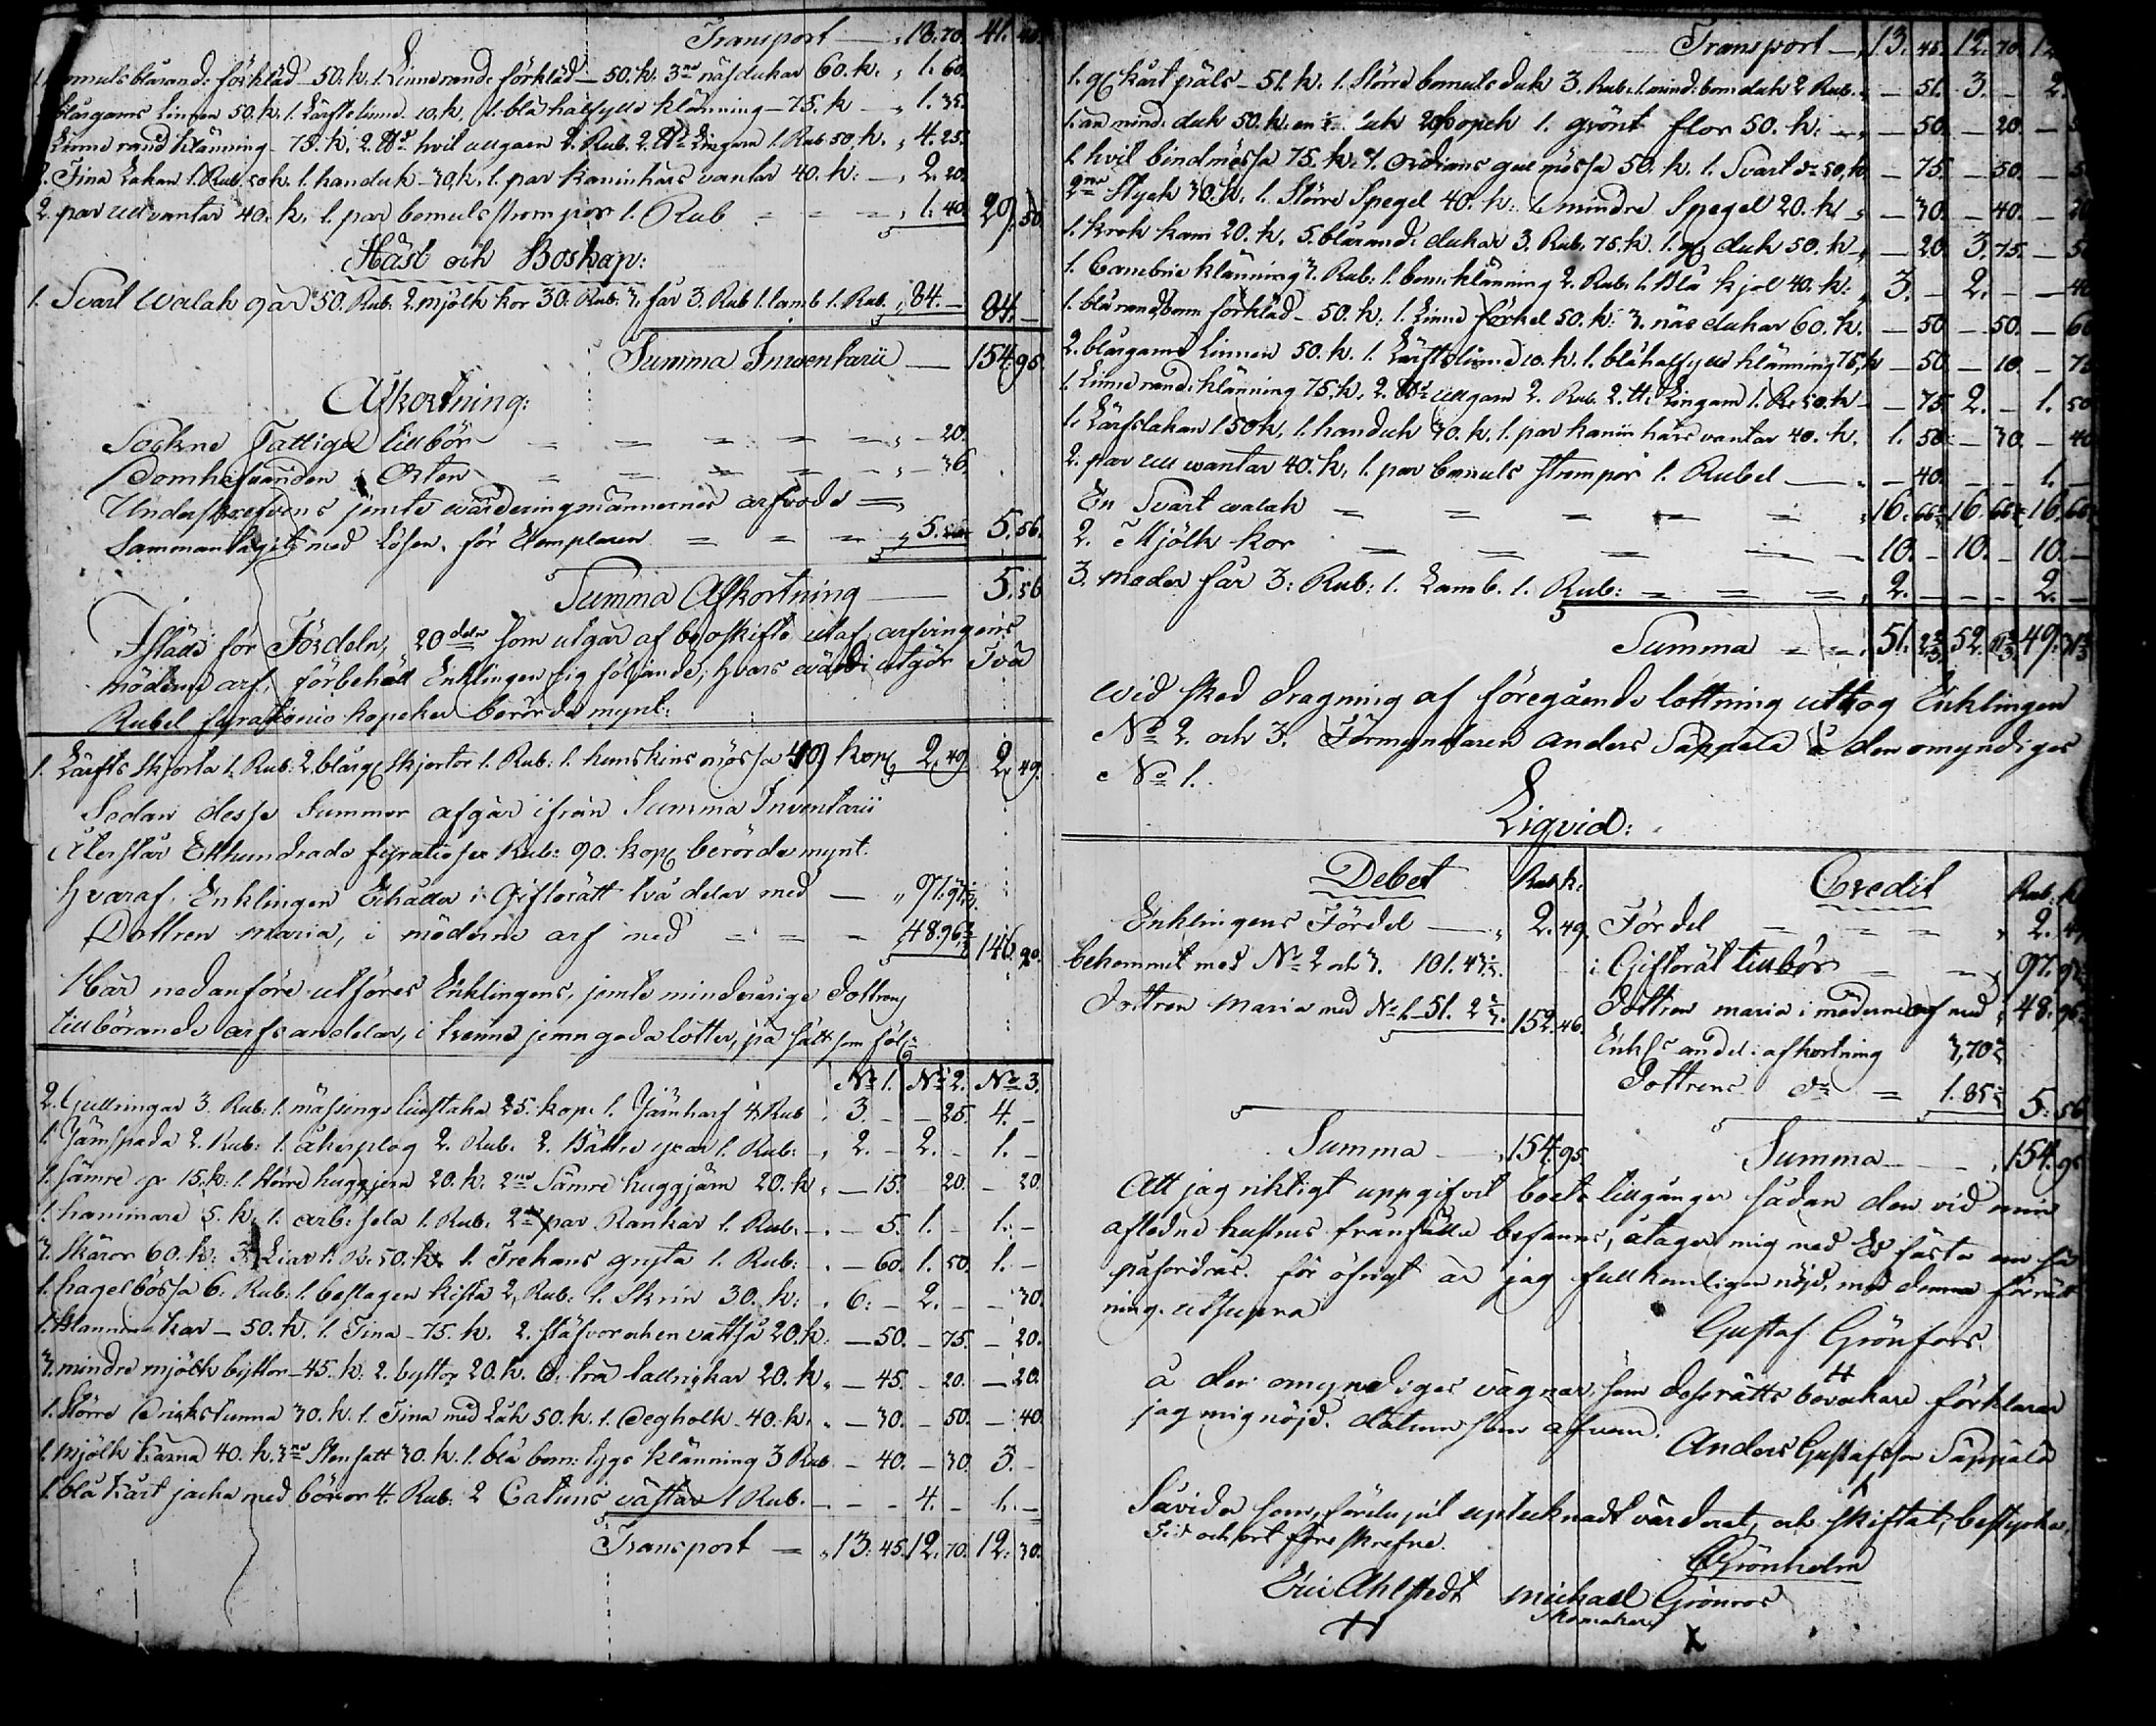 Transport — 18.70. 41. 40.
bomuls blårand: förkläd — 50. k. 1. Linne rand: förkläd — 50. k. 3ne näsdukar 60. k. 1. 60.
blårgarns Linnen 50. k. 1. Lärftslinne 10. k. 1. blå halfylle klänning — 75. k — 1. 35.
Linne rand klänning — 75. k. 2. ℔r hvit ullgarn 2. Rub. 2. ℔r Lingarn 1. Rub 50. k. 4. 25.
Fina Lakan 1. Rub. 50 k. 1. handuk — 30. k. 1. par Kaninhårs vantar 40. k: — 2. 20.
2. par ull vantar 40. k. 1. par bomuls strumpor 1. Rub = = = 1. 40. 29. 50.
Häst och Boskap:
1. Svart Walak går 50. Rub: 2. mjölk kor 30. Rub: 3. får 3. Rub 1. lamb 1. Rub. 84. — 84. —
Summa Inventarii — 154. 95.
Afkortning:
Sockne Fattige tillbör = = = = = — 20.
Domhafvanden i Orten = = = = — 36.
Underskrefvens jemte värderingmännernes arfvode =
Sammanlagit med Lösen för Exemplaren = = = 5. — 5. 56.
Summa Afkortning — 5. 56
I ställe för Fördeln, 20 deln som utgår af boskifte utaf arfvingens
möderne arf, förbehåll Enklingen sig följande, hvars värde utgör Två
Rubel fyrationio kopeker berörde mynt:
1. Lärfts skjorta 1. Rub: 2. blårg skjortor 1. Rub: 1. hunskins mössa 49 kop 2. 49. 2. 49.
Sedan desse Summor afgår ifrån Summa Inventarii
Återstår Etthundrade fyratiosex Rub: 90. kop berörde mynt.
Hvaraf Enklingen Erhåller i Giftorätt två delar med — 97. 93 1/3.
Dottren Maria, i möderne arf med = = = 48. 96 2/3 146. 90.
Här nedanföre utföres Enklingens, jemte minderårige dottrens
tillbörande arfsandelar, i trenne jemngoda lotter, på sätt som följ:
No 1. No 2. No 3.
2. Gullringar 3. Rub: 1. mässings liustaka 25. kop: 1. Järnharf 4. Rub 3. — — 25. 4. —
1. Järnspada 2. Rub: 1. åkerplog 2. Rub. 2. Bättre yxor 1. Rub: — 2. — 2. — 1. —
1. sämre yx 15. k: 1. större huggjern 20. k. 2ne Sämre huggjärn 20. k. — 15. — 20. — 20.
1. haminare 5. k. 1. arb: sela 1. Rub. 2ne par Rankar 1. Rub. — 5. 1. — 1. —
3. Skäror 60. k: 3. Liar 1. R. 50. k. 1. Trehans gryta 1. Rub: — 60. 1. 50. 1. —
1. hagelbössa 6. Rub: 1. beslagen kista 2. Rub: 1. Skrin 30. k: 6. — 2. — — 30.
1. Kar — 50. k. 1. Tina — 75. k. 2. och en vattså 20. k. — 50. — 75. — 20.
3. mindre mjölk byttor — 45. k: 2. byttor 20. k. 6. trä tallrickar 20. k. — 45. — 20. — 20.
1. Större Drickstunna 30. k. 1. Tina med Låk 50. k. 1. Degholk — 40. k. — 30. — 50. — 40.
1. mjölk kärna 40. k. 3ne Stenfatt 30. k. 1. blå bom: tygs klänning 3 Rub — 40. — 30. 3. —
1. blå kärt jacka med 4. Rub: 2 Catuns västar 1. Rub. — — 4. — 1. —
Transport = 13. 45. 12. 70. 12. 30.
Transport — 13. 45. 12. 70. 12
1. kårt päls — 51. k. 1. Större bomuls duk 3. Rub. 1. mind: bom duk 2 Rub. — 51. 3. — 2.
1. an mind: duk 50. k. en duk 20 kopek 1. grönt flor 50. k. — — 50. — 20. —
1. hvit bindmössa 75. k. 1. gul mössa 50. k. 1. Svart do 50. k. — 75. — 50. —
2ne Styck 30. k. 1. Större Spegel 40. k. 1. mindre Spegel 20. k — — 30. — 40. — 20
1. krok kam 20. k. 5. blårand: dukar 3. Rub. 75. k. 1. duk 50. k. — 20. 3. 75. — 50
1. Cambric klänning 3. Rub: 1. bom: klänning 2. Rub: 1. Blå kjol 40. k: 3. — 2. — — 40
1. blå rand bom förkläd — 50. k: 1. Linne förkel 50. k: 3. näsdukar 60. k. — 50 — 50. — 60
2. blårgarns Linnen 50. k. 1. Lärftslinne 10. k. 1. blå halfylle klänning 75. k — 50 — 10. — 75
1. Linne rand: klänning 75. k. 2. ℔r ullgarn 2. Rub. 2. ℔ Lingarn 1. R. 50. k — — 75 2. — 1. 50
1. Lärfslakan 1. 50 k. 1. handuk 30. k. 1. par kanin hårs vantar 40. k. 1. 50. — 30. — 40
2. par ull wantar 40. k. 1. par bomuls strumpor 1. Rubel — — 40. — — 1. —
En Svart walak = = = = = 16. 66 2/3 16. 66 2/3 16. 66 2/3
2. Mjölk kor = = = = 10. — 10. — 10. —
3. moder får 3: Rub: 1. Lamb. 1. Rub: = = = 2. — — — 2. —
Summa = = 51. 2 2/3 52. 11 2/3 49. 31 2/3
Wid sked dragning af föregående lottning uttog Enklingen
No 2. och 3. Förmyndaren Anders Säppälä å den omyndiges
No 1.
Liqvid:
Debet Rub k. Credit Rub. k
Enklingens Fördel — 2. 49. Fördel = = = 2. 49
bekommit med No 2 och 3. 101. 43 1/3. i Giftorät tillbör = = 97. 93 1/3
Dottren Maria med No 1. 51. 2 2/3. 152. 46. Dottren Maria i möderne arf med 48. 96 2/3
Enkls andel i afkortning 3,70 2/3
Dottrens do = 1. 85 1/3 5. 56
Summa — 154. 95. Summa — 154. 95
Att jag riktigt uppgifvit boets tillgångar sådan den vid min
afledne hustrus frånfälle befanns, åtager mig med Ed fästa om så
påfordras. för öfrigt är jag fullkomligen nöjd, med denna förrätt
ning. ut supra
Gustaf Grönfors.
å den omyndiges vägnar, som dess rätts bevakare förklarar
jag mig nöjd. datum som ofvan.
Anders Gustafsson Säppälä
Såvida som förelupit uptecknadt värderat, och skiftat, bestyrka,
Tid och ort föreskrefne.
Grönholm
Eric Ahlstedt Michael Grönroos
Skomakare